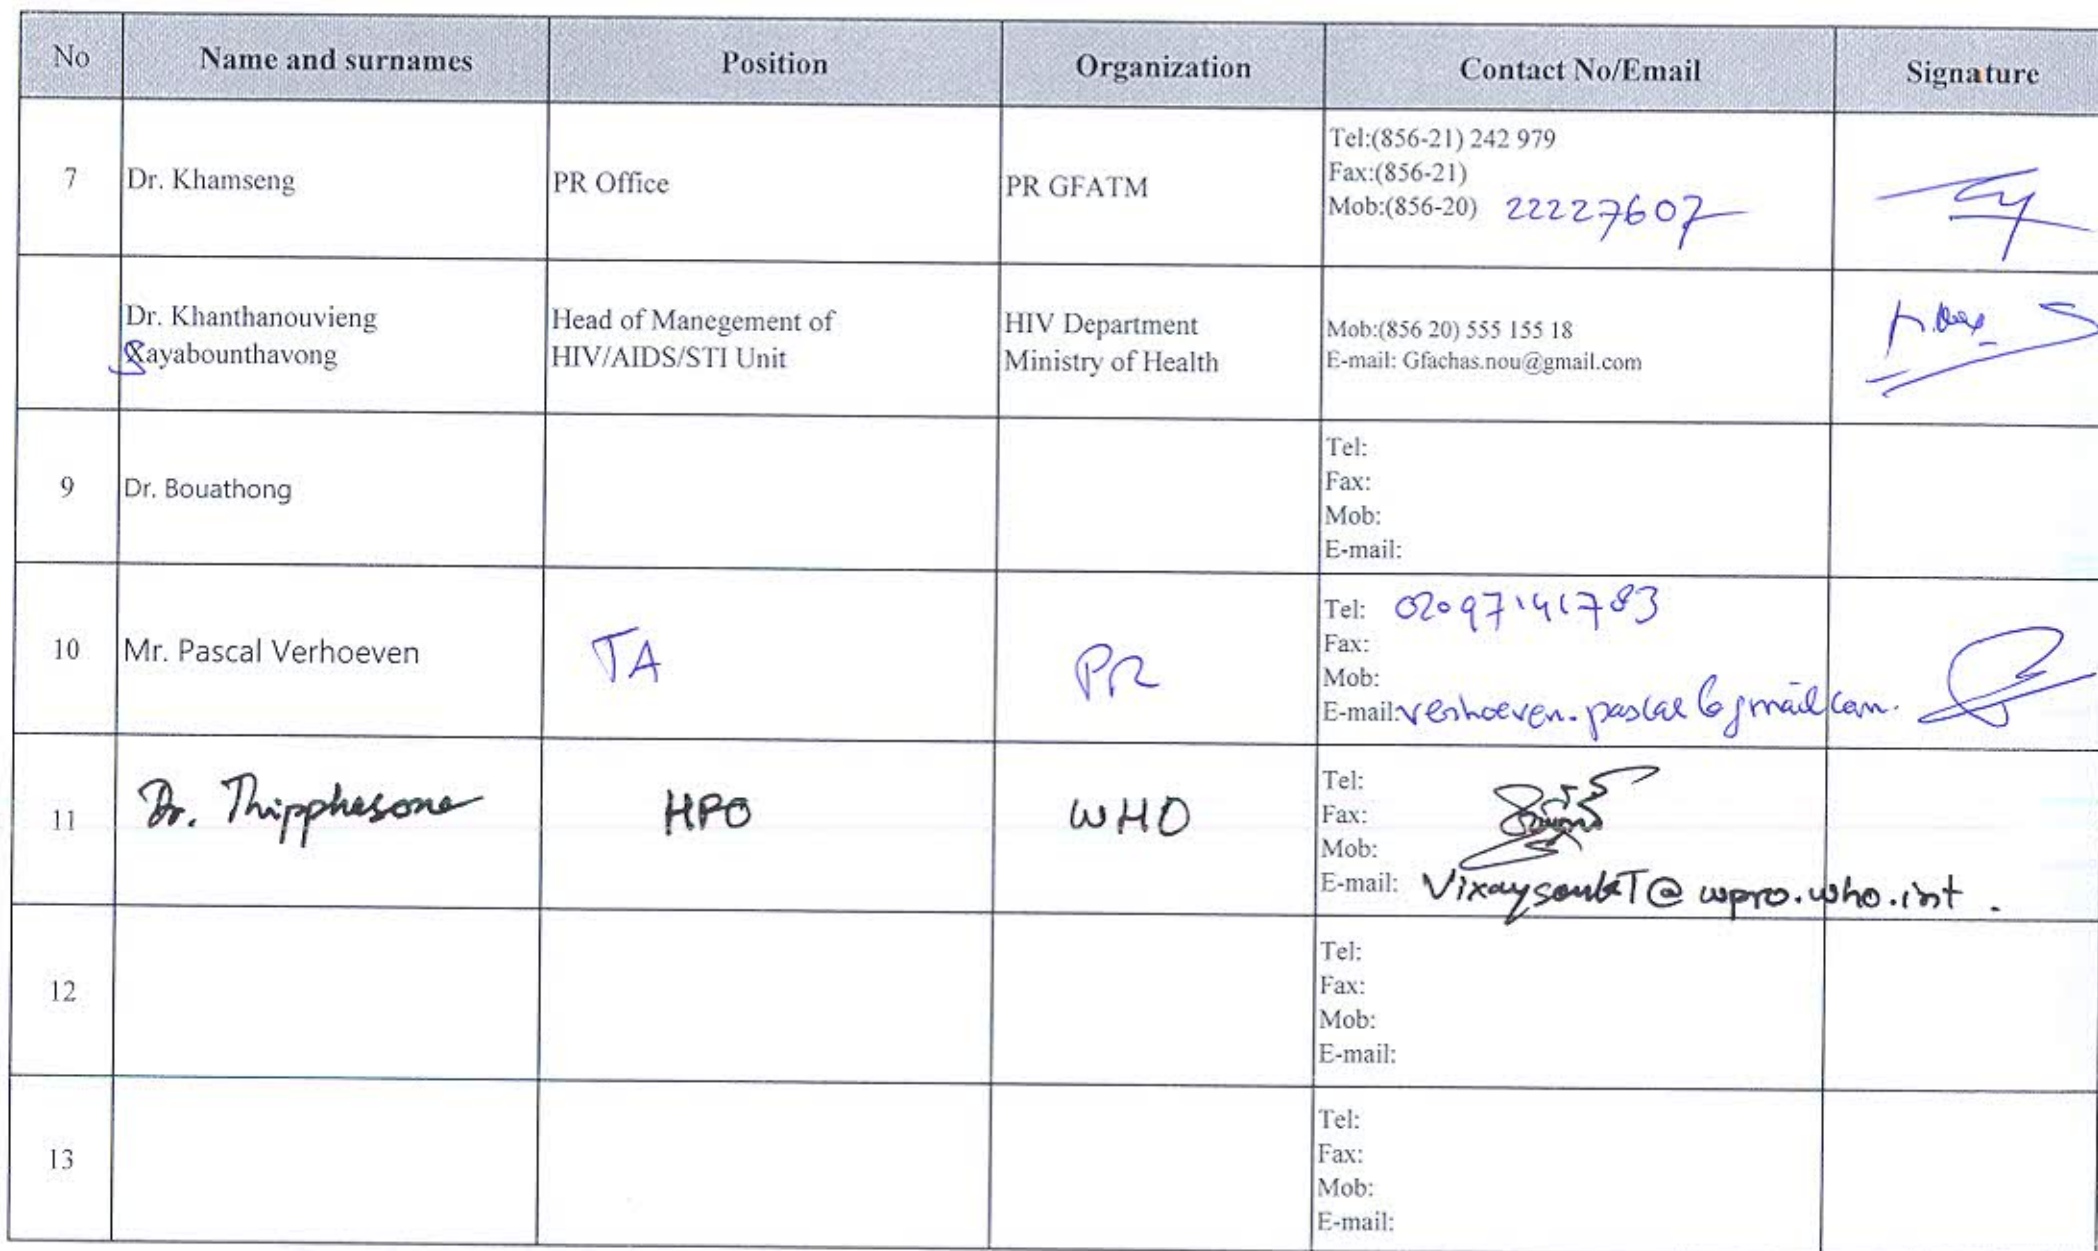 No Name and surnames Position Organization Contact No/Email Signature
7 Dr. Khamseng PR Office PR GFATM
Tel:(856-21) 242 979
Fax:(856-21)
Mob:(856-20) 22227607
Dr. Khanthanouvieng
Sayabounthavong
Head of Manegement of
HIV/AIDS/STI Unit
HIV Department
Ministry of Health
Mob:(856 20) 555 155 18
E-mail: Gfachas.nou@gmail.com
9 Dr. Bouathong
Tel:
Fax:
Mob:
E-mail:
10 Mr. Pascal Verhoeven TA PR
Tel: 02097141783
Fax:
Mob:
E-mail: verhoeven.pascal@gmail.com.
11 Dr. Thipphasone HPO WHO
Tel:
Fax:
Mob:
E-mail: @wpro.who.int.
12
Tel:
Fax:
Mob:
E-mail:
13
Tel:
Fax:
Mob:
E-mail: